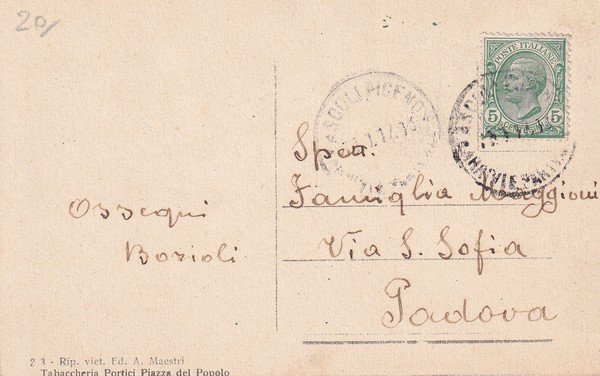 20/
POSTE ITALIANE
5 5
CENTESIMI
ASCOLI PICENO
Spett.
Famiglia Maggioni
Via S. Sofia
Padova
Ossequi
Borioli
2 3 - Rip. viet. Ed. A. Maestri
Tabaccheria Portici Piazza del Popolo